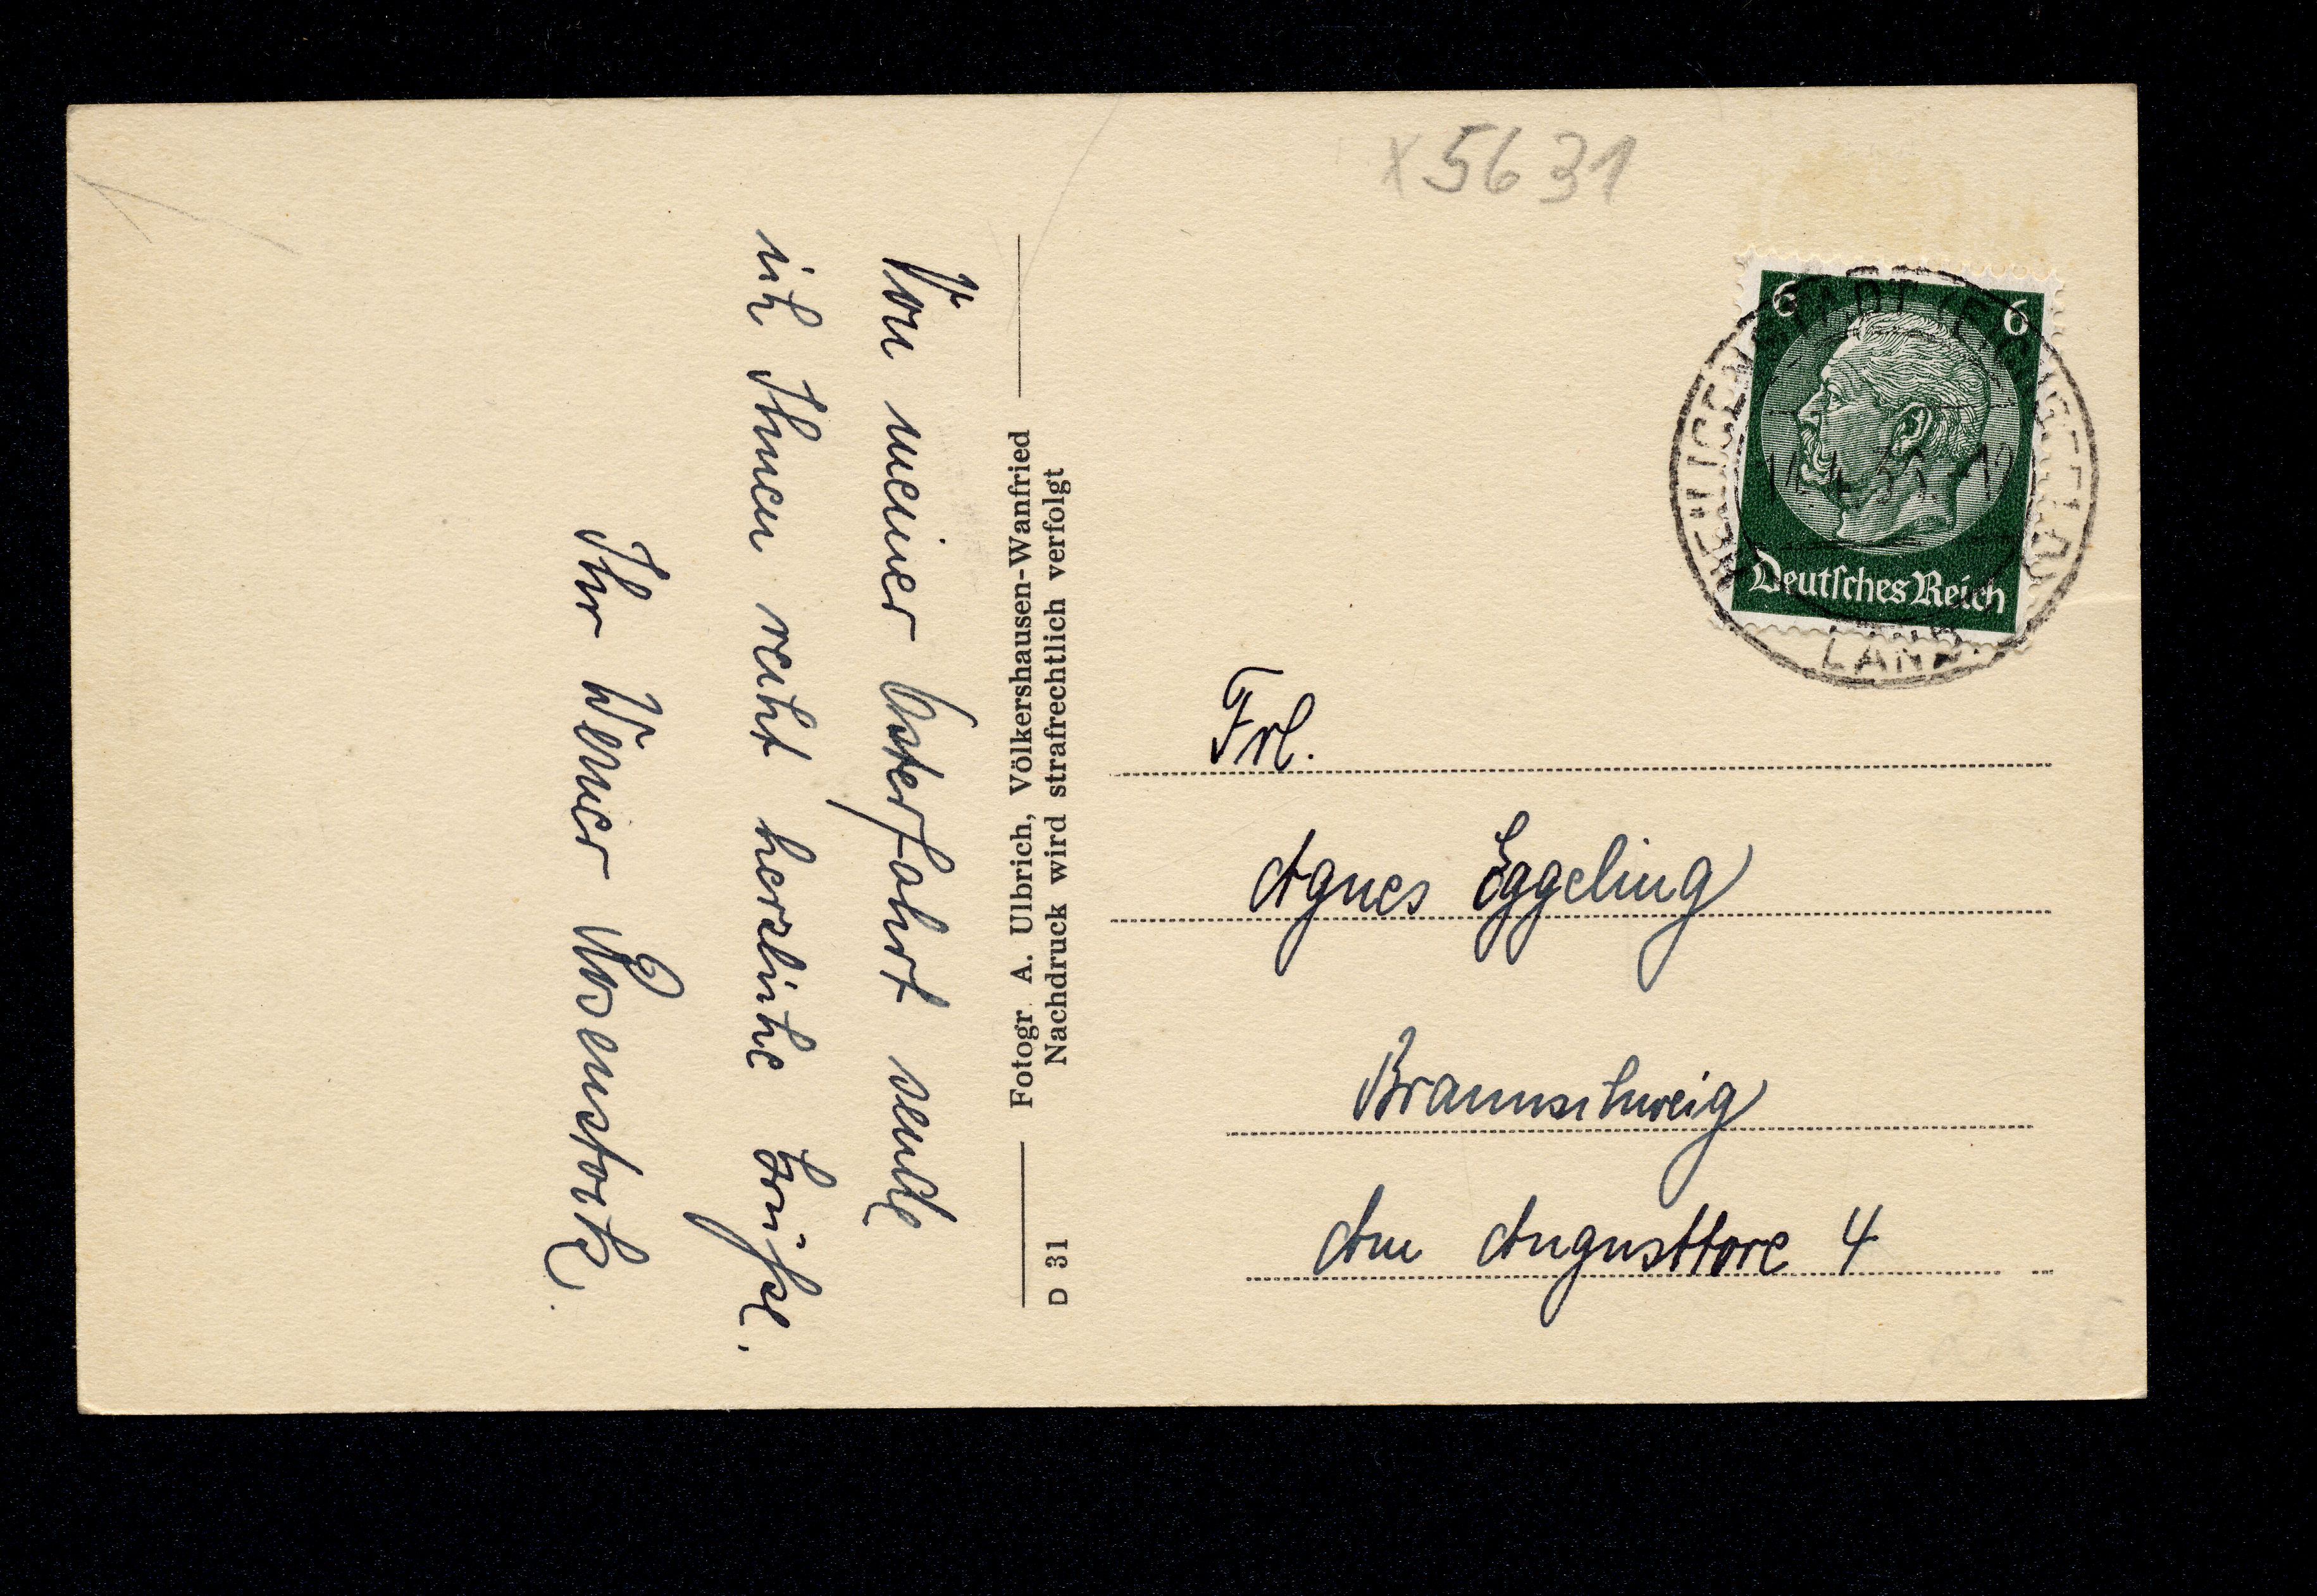 x 5631
6 6
Deutsches Reich
LAND
Von meiner Osterfahrt sende
ich Ihnen recht herzliche Grüße.
Ihr Werner Rosenstock.
Fotogr. A. Ulbrich, Völkershausen-Wanfried
Nachdruck wird strafrechtlich verfolgt
D 31
Frl.
Agnes Eggeling
Braunschweig
Am Augusttore 4